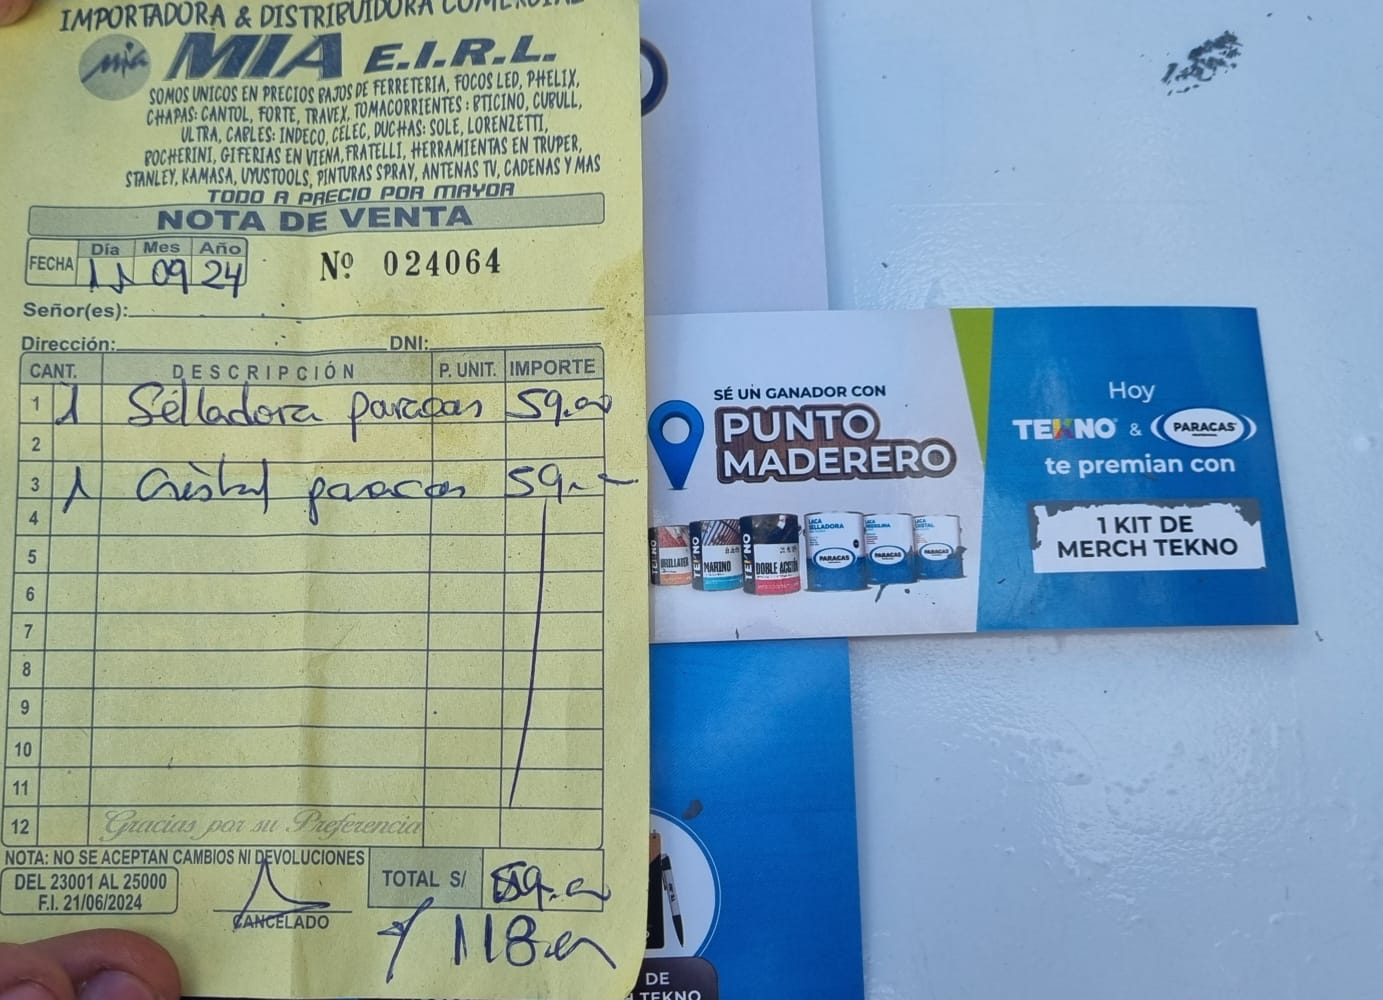 IMPORTADORA & DISTRIBUIDORA COMERCIAL
mia
MIA E.I.R.L.
SOMOS UNICOS EN PRECIOS BAJOS DE FERRETERIA, FOCOS LED, PHELIX,
CHAPAS: CANTOL, FORTE, TRAVEX, TOMACORRIENTES: BTICINO, CUBULL,
ULTRA, CABLES: INDECO, CELEC, DUCHAS: SOLE, LORENZETTI,
BOCHERINI, GIFERIAS EN VIENA, FRATELLI, HERRAMIENTAS EN TRUPER,
STANLEY, KAMASA, UYUSTOOLS, PINTURAS SPRAY, ANTENAS TV, CADENAS Y MAS
TODO A PRECIO POR MAYOR
NOTA DE VENTA
FECHA Día Mes Año
11 09 24
Nº 024064
Señor(es):
Dirección: DNI:
CANT. DESCRIPCIÓN P. UNIT. IMPORTE
1 1 Selladora paracas 59.00
2
3 1 Cristal paracas 59.-
4
5
6
7
8
9
10
11
12 Gracias por su Preferencia
NOTA: NO SE ACEPTAN CAMBIOS NI DEVOLUCIONES
DEL 23001 AL 25000
F.I. 21/06/2024
CANCELADO
TOTAL S/ 59.00
118.00
SÉ UN GANADOR CON
PUNTO
MADERERO
TEKNO
MARINO
TEKNO
DOBLE ACCIÓN
LACA
SELLADORA
PARACAS
LACA
PARACAS
LACA
CRISTAL
PARACAS
Hoy
TEKNO & PARACAS
te premian con
1 KIT DE
MERCH TEKNO
DE
TEKNO